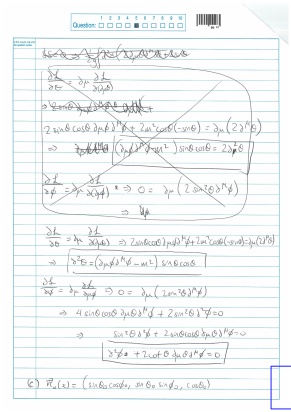 Question:
1 2 3 4 5 6 7 8 9 10
∂L/∂θ = ∂μ ∂L/∂(∂μθ)
2 sinθ cosθ ∂μφ ∂^μφ + 2m² cosθ(-sinθ) = ∂μ(2∂^μθ)
⇒ (∂μφ ∂^μφ - m²) sinθ cosθ = 2∂²θ
∂L/∂φ = ∂μ ∂L/∂(∂μφ) ⇒ 0 = ∂μ(2 sin²θ ∂^μφ)
⇒
∂L/∂θ = ∂μ ∂L/∂(∂μθ) ⇒ 2 sinθ cosθ ∂μφ ∂^μφ + 2m² cosθ(-sinθ) = ∂μ(2∂^μθ)
⇒ ∂²θ = (∂μφ ∂^μφ - m²) sinθ cosθ
∂L/∂φ = ∂μ ∂L/∂∂μφ ⇒ 0 = ∂μ(2 sin²θ ∂^μφ)
⇒ 4 sinθ cosθ ∂μθ ∂^μφ + 2 sin²θ ∂²φ = 0
⇒ sin²θ ∂²φ + 2 sinθ cosθ ∂μθ ∂^μφ = 0
∂²φ + 2 cotθ ∂μθ ∂^μφ = 0
(c) n₀(x) = (sinθ₀ cosφ₀, sinθ₀ sinφ₀, cosθ₀)